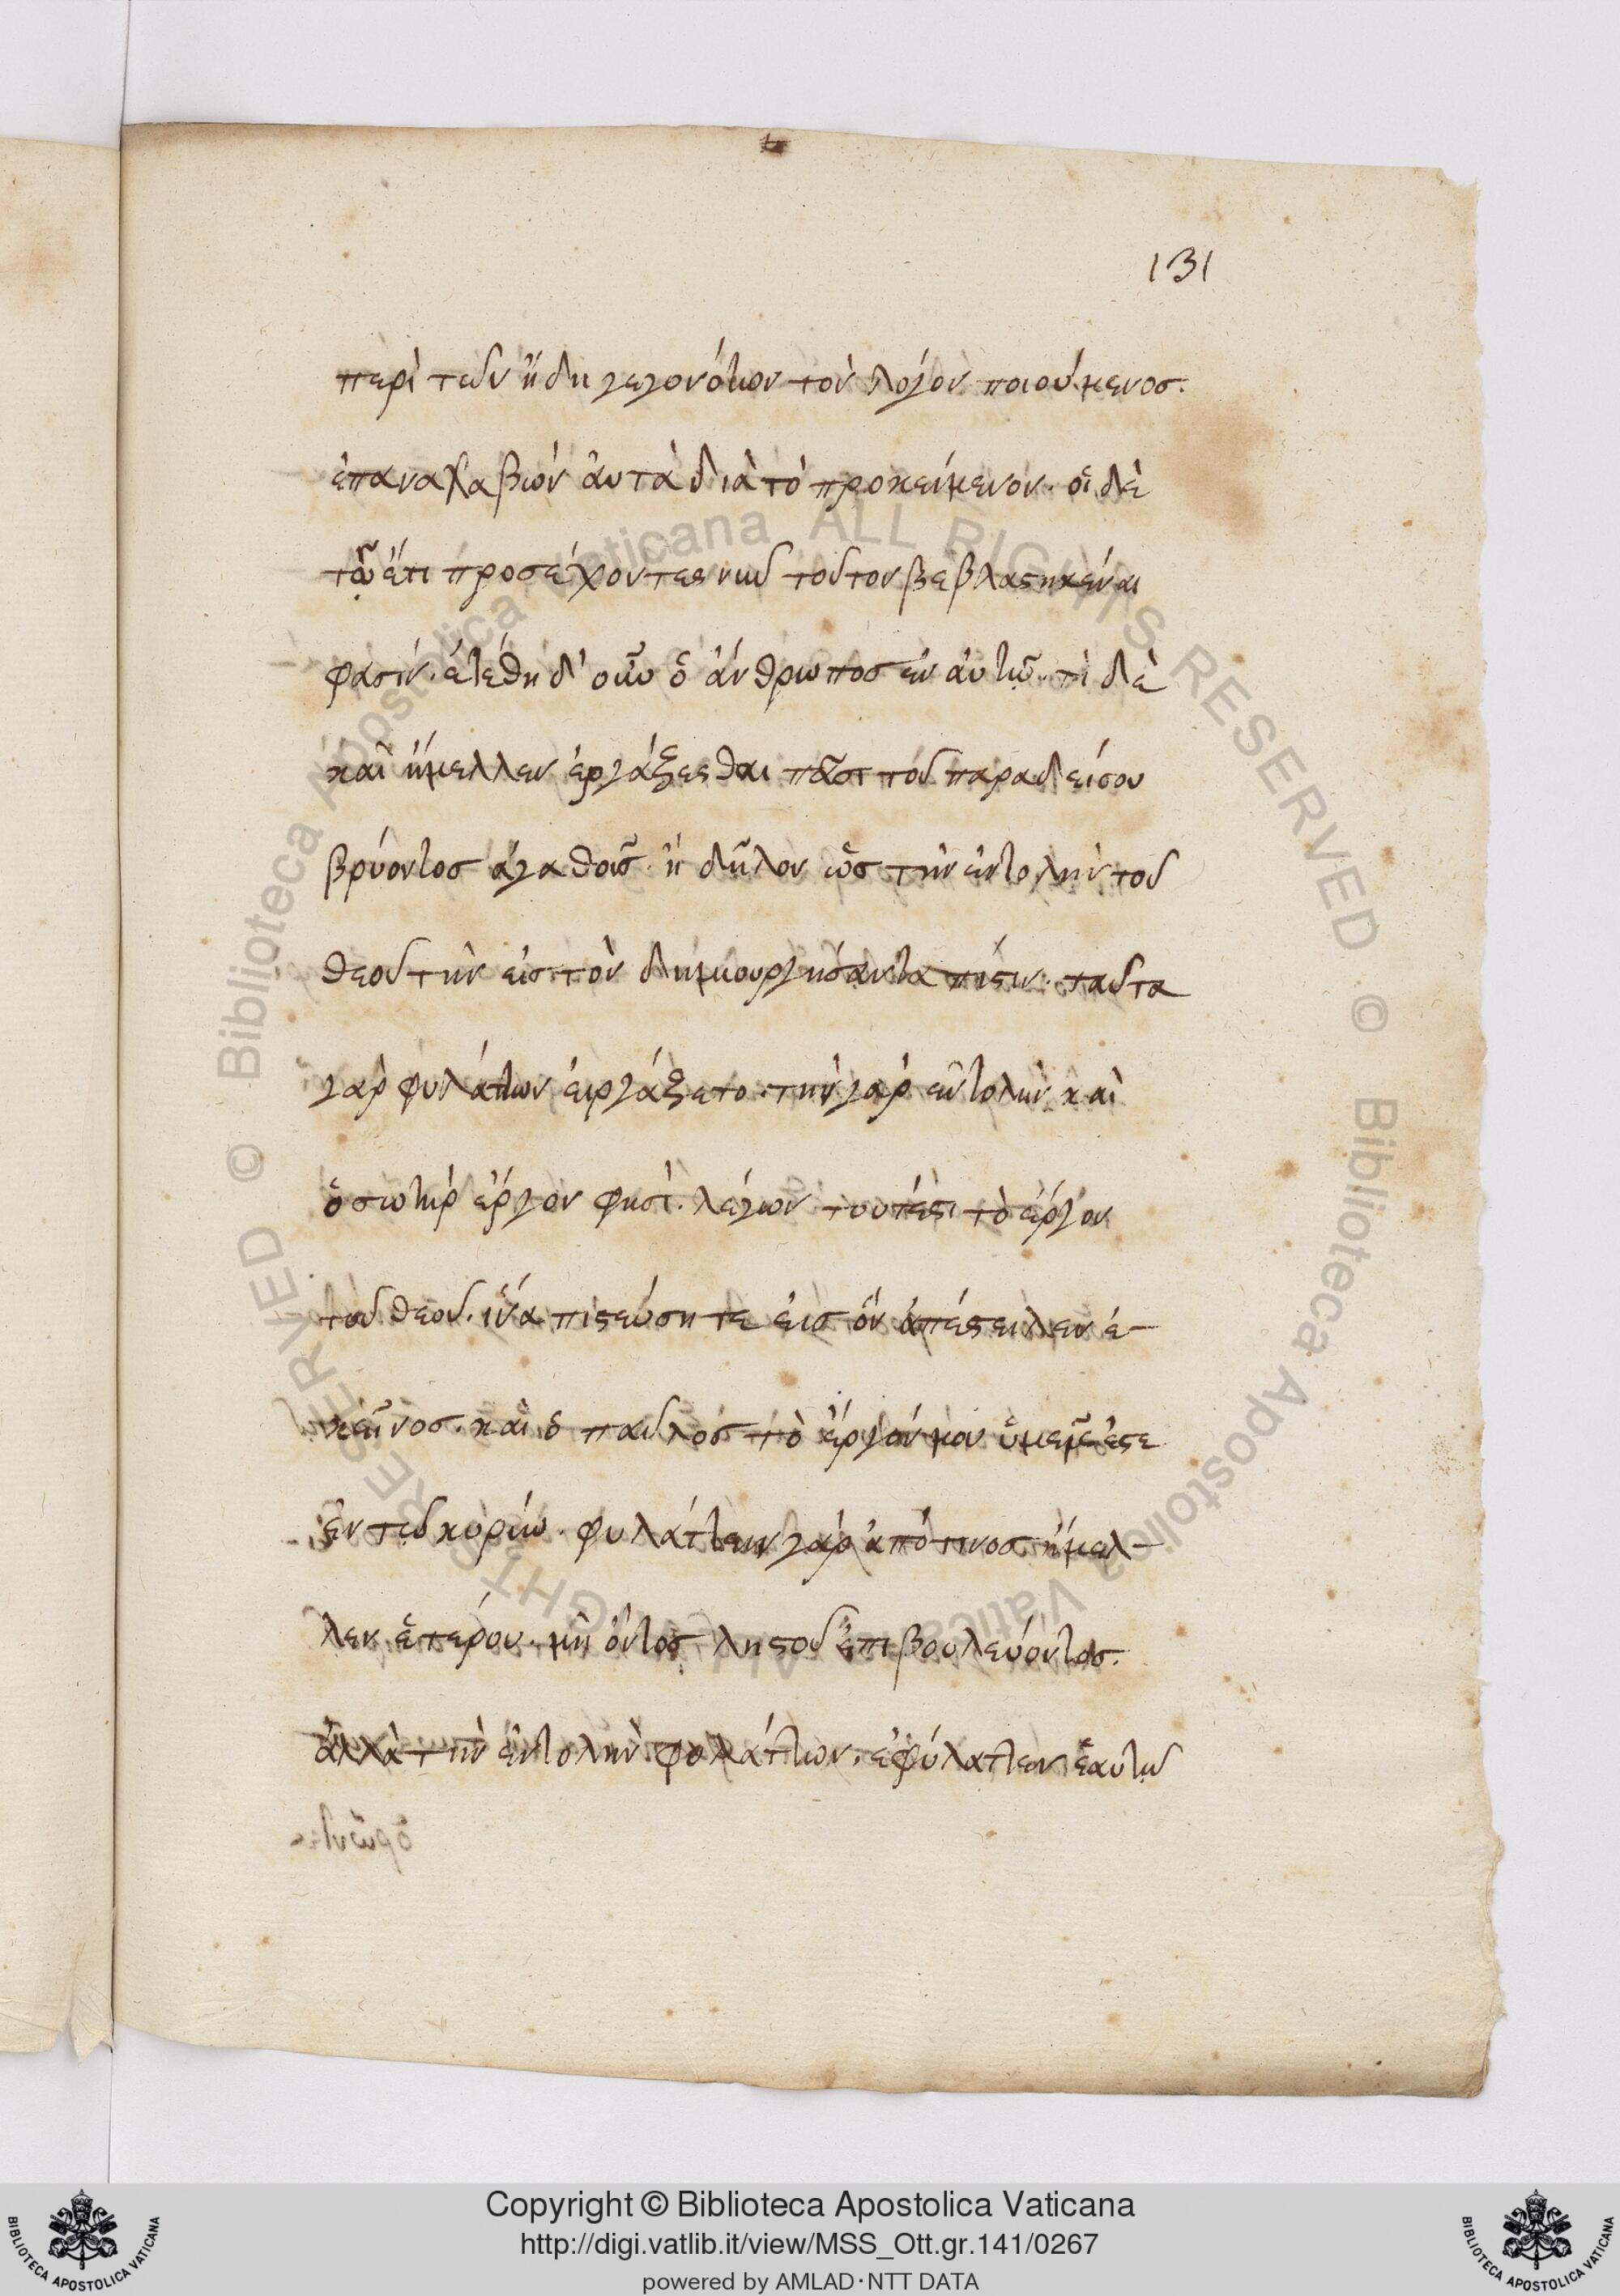 131
περὶ τῶν ἤδη γεγονότων τὸν λόγον ποιούμενος.
ἐπαναλαβὼν ἀυτὰ διὰ τὸ προκείμενον. οἱ δὲ
τῷ ἔτι προσέχοντες νῦν τοῦτον βεβλαστηκέναι
φασίν. ἐτέθη δ' οὖν ὁ ἄνθρωπος ἐν ἀυτῷ. τί δὲ
καὶ ἤμελλεν ἐργάζεσθαι πᾶσι τοῦ παραδείσου
βρύοντος ἀγαθοῖς. ἢ δῆλον ὡς τὴν ἐντολὴν τοῦ
θεοῦ τὴν εἰς τὸν δημιουργήσαντα πίστιν. ταῦτα
γὰρ φυλάττων ἐιργάζετο. τὴν γὰρ ἐντολὴν καὶ
ὁ σωτὴρ ἔργον φησὶ. λέγων τουτέστι τὸ ἔργον
τοῦ θεοῦ. ἵνα πιστεύσητε ἐις ὃν ἀπέστειλεν ἐ-
κεῖνος. καὶ ὁ παῦλος τὸ ἔργον μου ὑμεῖς ἐστε
ἐν τῷ κυρίῳ. φυλάττειν γὰρ ἀπό τινος ἤμελ-
λεν ἑτέρου. μὴ ὄντος ληστοῦ ἐπιβουλεύοντος.
ἀλλὰ τὴν ἐντολὴν φυλάττων. ἐφύλαττεν ἑαυτῷ
ὁρῶντες
Copyright © Biblioteca Apostolica Vaticana
http://digi.vatlib.it/view/MSS_Ott.gr.141/0267
powered by AMLAD·NTT DATA
BIBLIOTECA APOSTOLICA VATICANA
BIBLIOTECA APOSTOLICA VATICANA
© Biblioteca Apostolica Vaticana ALL RIGHTS RESERVED
© Biblioteca Apostolica Vaticana ALL RIGHTS RESERVED